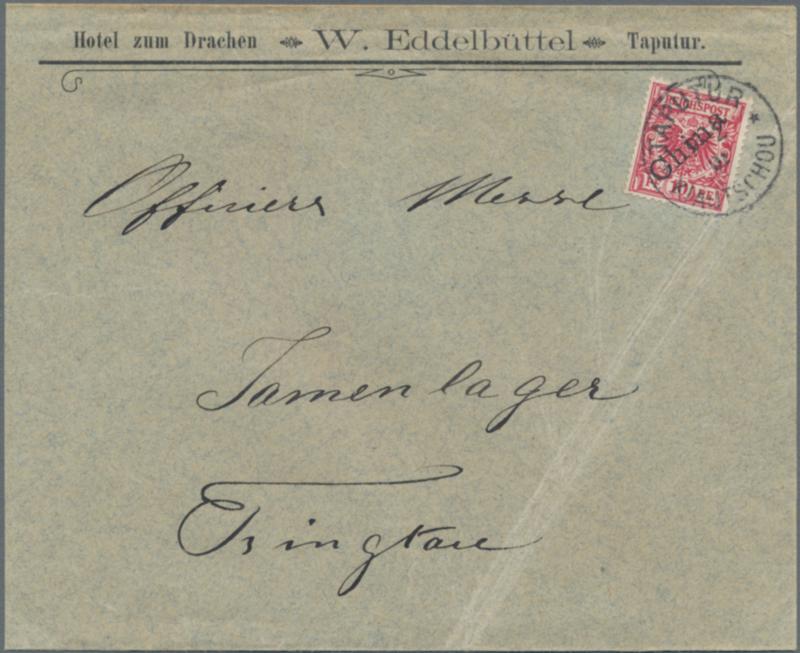 Hotel zum Drachen W. Eddelbüttel Taputur.
REICHSPOST
China
TAPUTUR
Officiers Messe
Jamenlager
Tsingtau